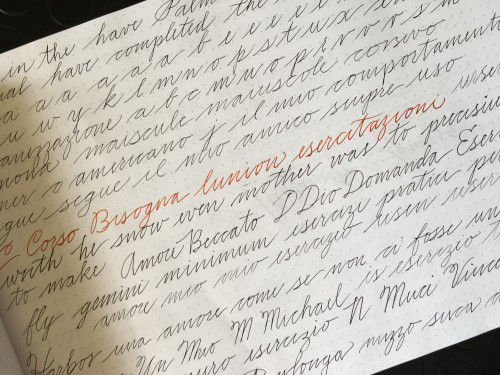 in the have Palm
ual have completed the
a a a a a b e e e e e
u w y k l m n o p s t u x
anizzazione a b c m u o p r v v s m
mona maiscule maiuscole corsivo
ner o americano j il mio comportamento
gue segue il mio amico sempre uso
o Corso Bisogna lunion esercitazioni
worth he snow even mother was to precision
to make Amore Beccato D Dio Domanda Eser
fly gemini minimum esercizi pratici
amore mio mio esercizio usen user
Harbos una amore come se non ci fosse un
Un Mio M Michael is esercizio
muro esercizio N Muci Vince
nuzzo suca